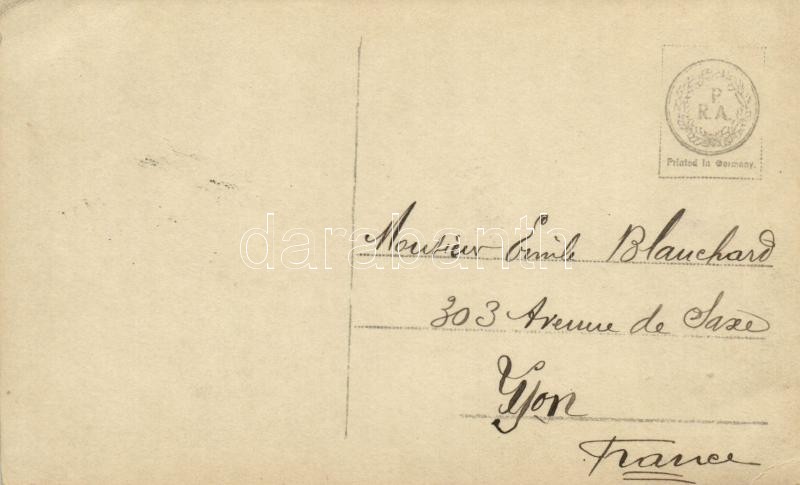 P
R.A.
Printed in Germany.
Monsieur Emile Blanchard
darabanth
303 Avenue de Saxe
Lyon
France